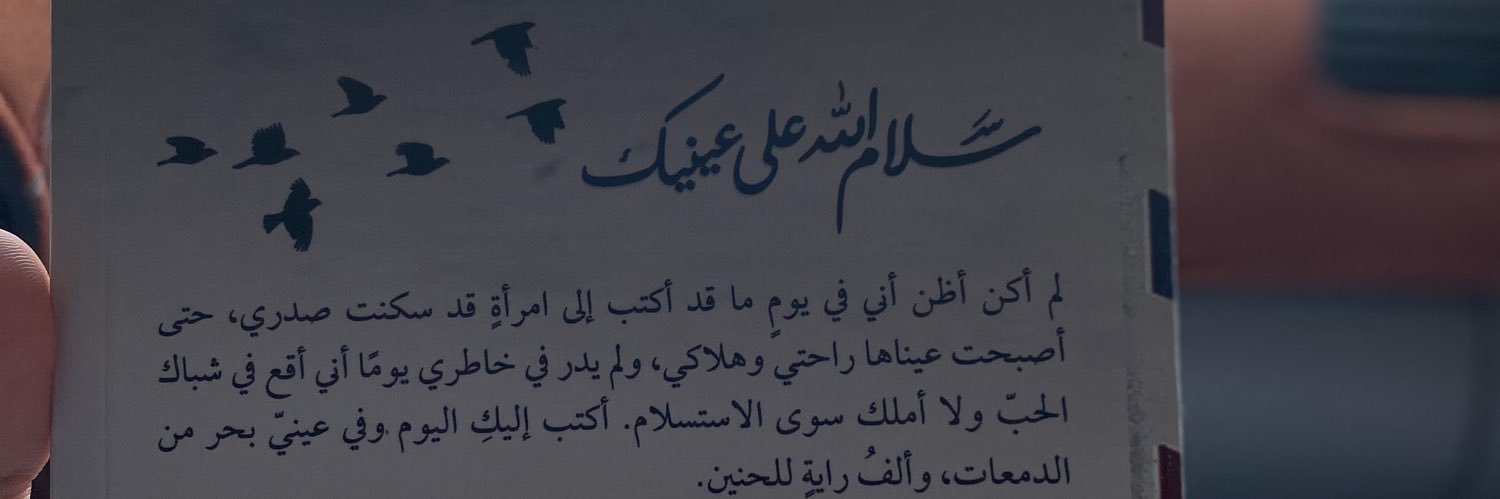 سَلام الله على عينيك
لم أكن أظن أني في يومٍ ما قد أكتب إلى امرأةٍ قد سكنت صدري، حتى
أصبحت عيناها راحتي وهلاكي، ولم يدر في خاطري يومًا أني أقع في شباك
الحبّ ولا أملك سوى الاستسلام. أكتب إليكِ اليوم وفي عينيّ بحر من
الدمعات، وألفُ رايةٍ للحنين.